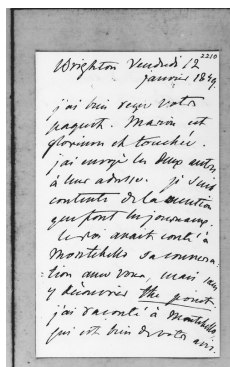 2210
Brighton Vendredi 12
janvier 1849.
j'ai bien reçu votre
paquet. Marion est
glorieuse et touchée.
j'ai envoyé les deux autres
à leur adresse. je suis
contente de la mention
que font les journaux.
le roi avait conté à
Montebello sa conversa-
tion avec vous, mais sans
y découvrir the point
j'ai raconté à Montebello
qui est bien de votre avis.